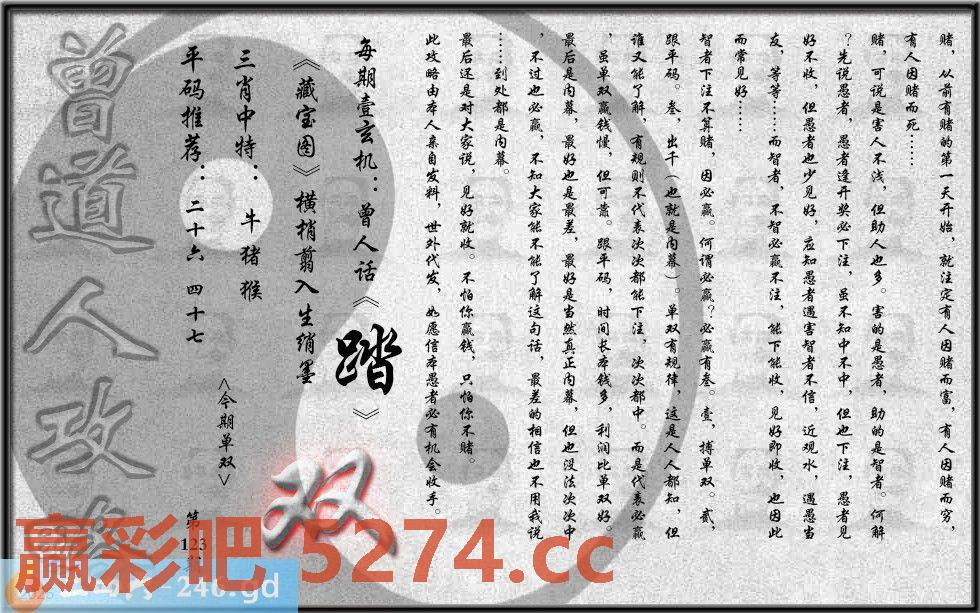 赌，从前有赌的第一天开始，就注定有人因赌而富，有人因赌而穷，
有人因赌而死……
赌，可说是害人不浅，但助人也多。害的是愚者，助的是智者。何解
？先说愚者，愚者逢开奖必下注，虽不知中不中，但也下注，愚者见
好不收，但愚者也少见好，应知愚者遇害智者不信，近观水，遇愚当
友，等等……而智者，不智必赢不注，能下能收，见好即收，也因此
而常见好……
智者下注不算赌，因必赢。何谓必赢？必赢有叁。壹，搏单双。贰，
跟平码。叁，出千（也就是内幕）。单双有规律，这是人人都知，但
谁又能了解，有规则不代表次次都能下注，次次都中。而是代表必赢
，虽单双赢钱慢，但可靠。跟平码，时间长本钱多，利润比单双好。
最后是内幕，最好也是最差，最好是当然真正内幕，但也没法次次中
，不过也必赢，不知大家能不能了解这句话，最差的相信也不用我说
……到处都是内幕。
最后还是对大家说，见好就收。不怕你赢钱，只怕你不赌。
此攻略由本人亲自发料，世外代发，如愿信本愚者必有机会收手。
每期壹玄机：曾人话《踏》
《藏宝图》横梢翦入生绡墨
三肖中特：牛猪猴
平码推荐：二十六 四十七
<今期单双>
双
第123
曾道人攻
赢彩吧 5274.cc
246.gd